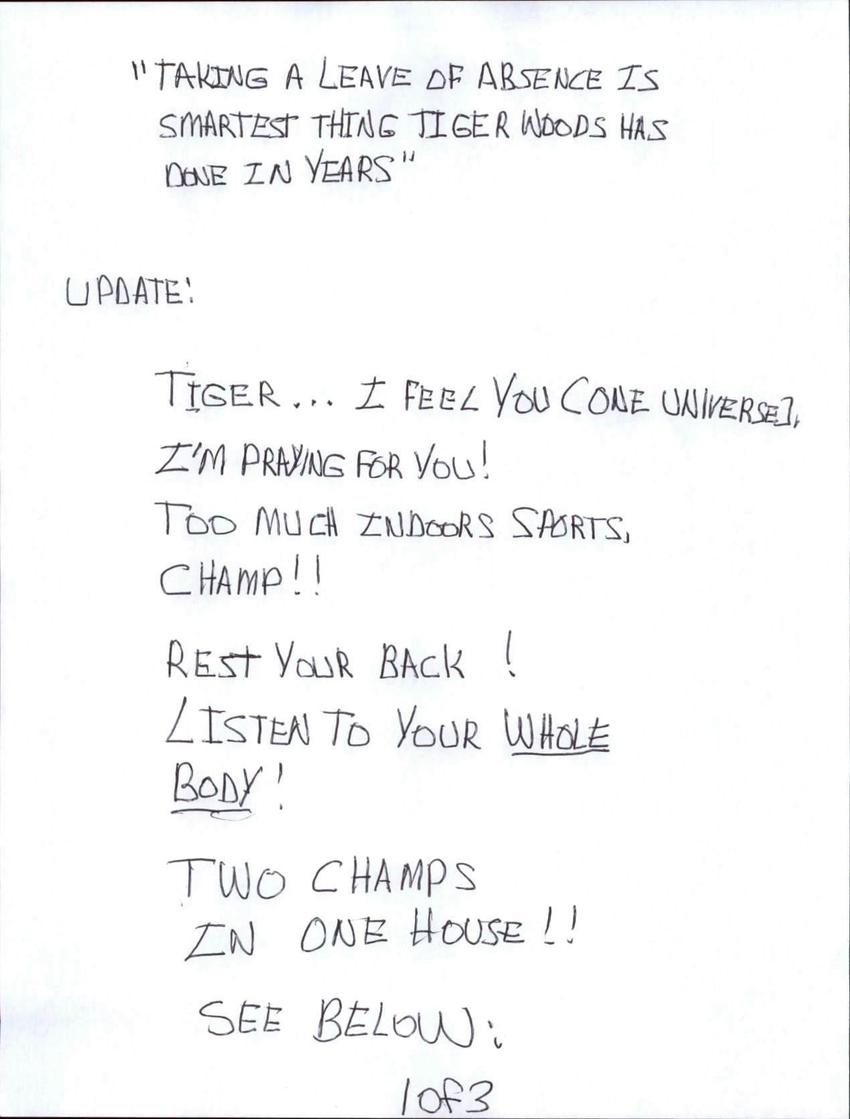 "TAKING A LEAVE OF ABSENCE IS
SMARTEST THING TIGER WOODS HAS
DONE IN YEARS"
UPDATE:
TIGER... I FEEL YOU [ONE UNIVERSE],
I'M PRAYING FOR YOU!
TOO MUCH INDOORS SPORTS,
CHAMP!!
REST YOUR BACK !
LISTEN TO YOUR WHOLE
BODY!
TWO CHAMPS
IN ONE HOUSE!!
SEE BELOW:
1 of 3